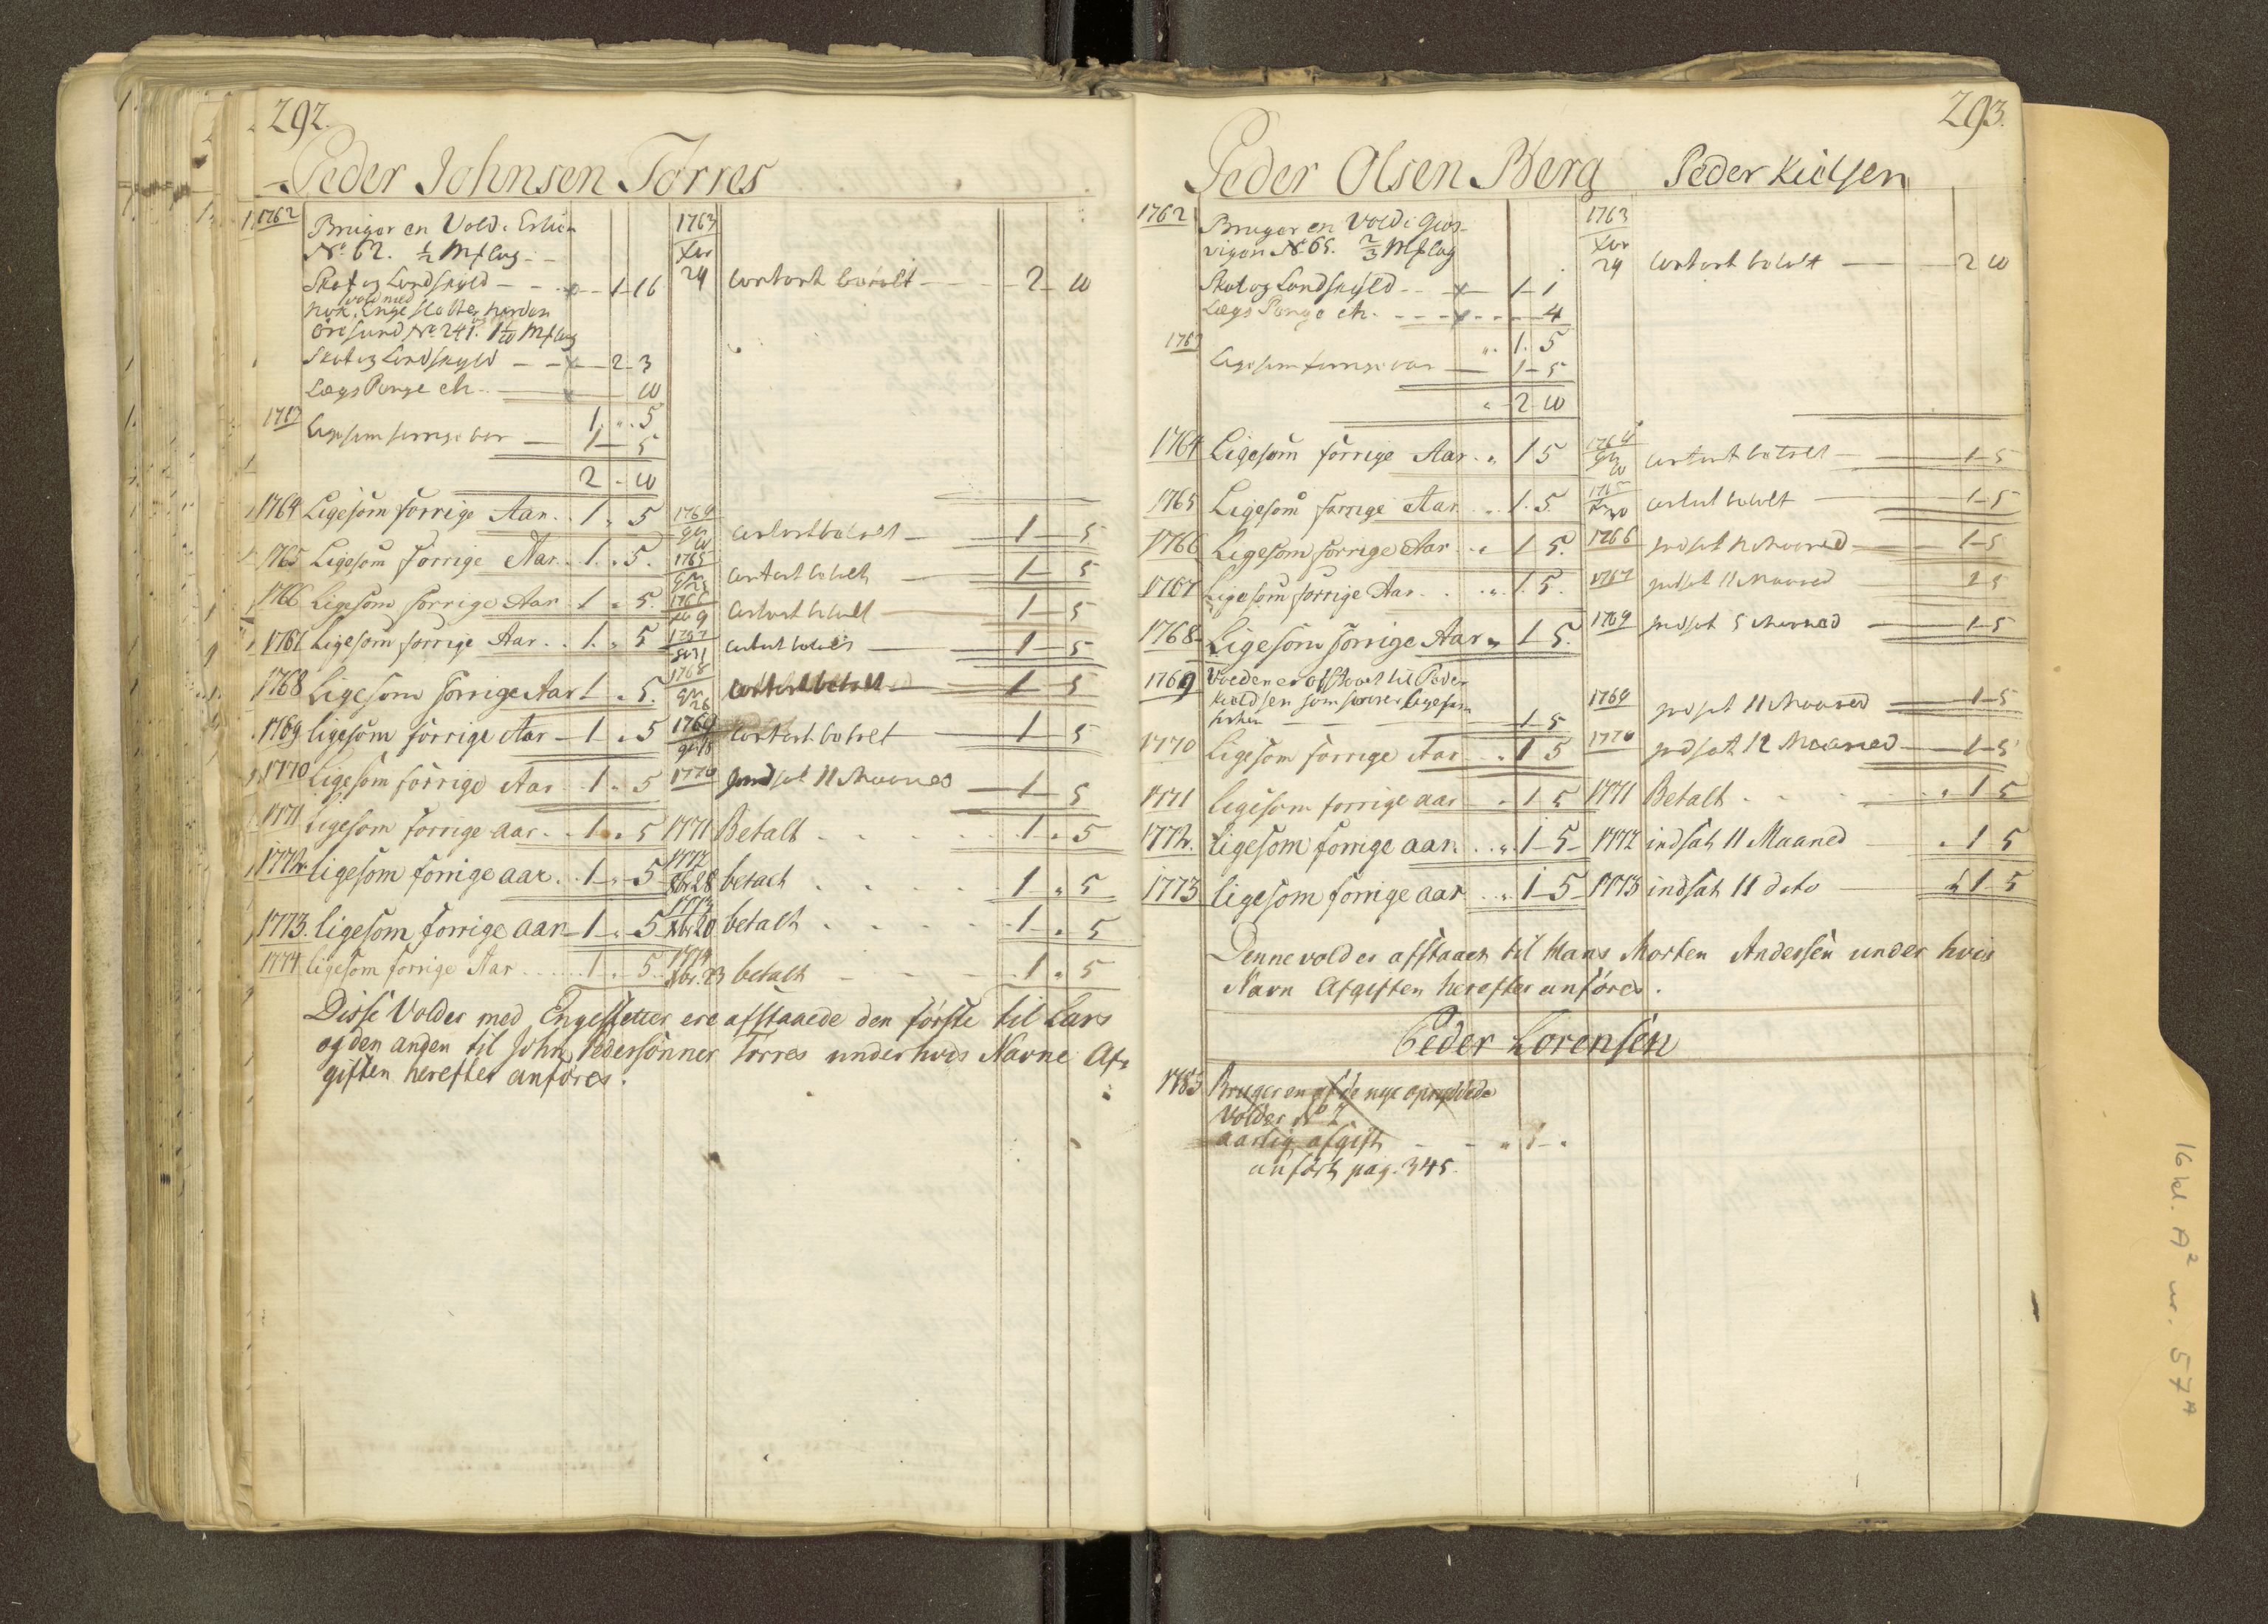 292.
Peder Johnsen Torres
1762 Bruger en Vold i
No. 62. 1/2 Mællag
Skat og Landskyld - - x - 1 - 16
vold med
nok. Enge sletter norden
öresund No. 241. 1 1/20 Mællag
Skat og Landskyld - - x - 2 - 3
Lægs Penge etc. - x - 10
1. " . 5
1763 Ligesom forrige aar - 1 - 5
2 - 10
1763
Xbr
29 contant betalt - 2 - 10
1764 Ligesom forrige Aar . . 1 " 5 1764 contant betalt - 1 - 5
1765 Ligesom forrige Aar . . 1 . " 5. 1765 contant betalt - 1 - 5
1766 Ligesom forrige Aar . 1 " 5. 1766 contant betalt - 1 - 5
1767 Ligesom forrige Aar . . 1 . " 5 1767 contant betalt - 1 - 5
1768 Ligesom forrige Aar 1 " 5. 1768 contant betalt - 1 - 5
1769 ligesom forrige Aar - 1 " 5 1769 contant betalt - 1 - 5
1770 Ligesom forrige Aar 1 " 5 1770 indsat 11 Maaned - 1 - 5
1771 ligesom forrige aar . . 1 " 5 1771 Betalt . . . . 1 " 5
1772. ligesom forrige aar . . 1 " 5 1772 Xbr 28 betalt . . . . 1 " 5
1773. ligesom forrige aar - 1 " 5 1773 Xbr 20 betalt . . . . 1 " 5
1774 ligesom forrige Aar . . . . 1 " 5 1774 Xbr. 23 betalt - - - 1 " 5
Disse Volder med Engesletter ere afstaaede den første til Lars
og den anden til John Pedersönner Torres under hvis Navne Af-
giften herefter anføres.
293.
Peder Olsen Berg Peder Kielsen
1762 Bruger en Vold i Gros-
vigen No. 65. 2/3 Mællag
Skat og Landskyld - - x - 1 - 1
Lægs Penge etc. - - - x - - - 4
". 1. 5
1763 Ligesom forrige aar - 1 - 5
" 2 10
1763
Xbr
29 contant betalt - 2 10
1764 Ligesom forrige Aar . " 1 5 1764 contant betalt - 1 - 5
1765 Ligesom forrige Aar . . " 1. 5. 1765 contant betalt - 1 - 5
1766 Ligesom forrige Aar . " 1 5. 1766 indsat 11 Maaned - 1 - 5
1767 Ligesom forrige Aar . . " 1. 5. 1767 indsat 11 Maaned 1 5
1768 Ligesom forrige Aar " 1 5. 1769 indsat 5 Maaned - 1 - 5
1769 Volden er afstaaet til Peder
Kieldsen som svarer ligesom
forhen - - - 1 - 5 1769 indsat 11 Maaned - 1 - 5
1770 Ligesom forrige Aar . . " 1 5 1770 indsat 12 Maaned - 1 - 5
1771 ligesom forrige aar - " 1 5 1771 Betalt . . . " 1 5
1772. ligesom forrige aar . . . " 1 - 5 - 1772 indsat 11 Maaned - " 1 5
1773 ligesom forrige aar . . " 1 - 5 - 1773 indsat 11 dito - " 1 - 5
Denne vold er afstaaet til Hans Morten Andersen under hvis
Navn Afgiften herefter anføres.
Peder Lorensen
1783 Bruger en af de nye opryddede
Volder No 7
aarlig afgift - - " 1 - "
anfört pag. 345.
16 kl. A² nr. 57 A